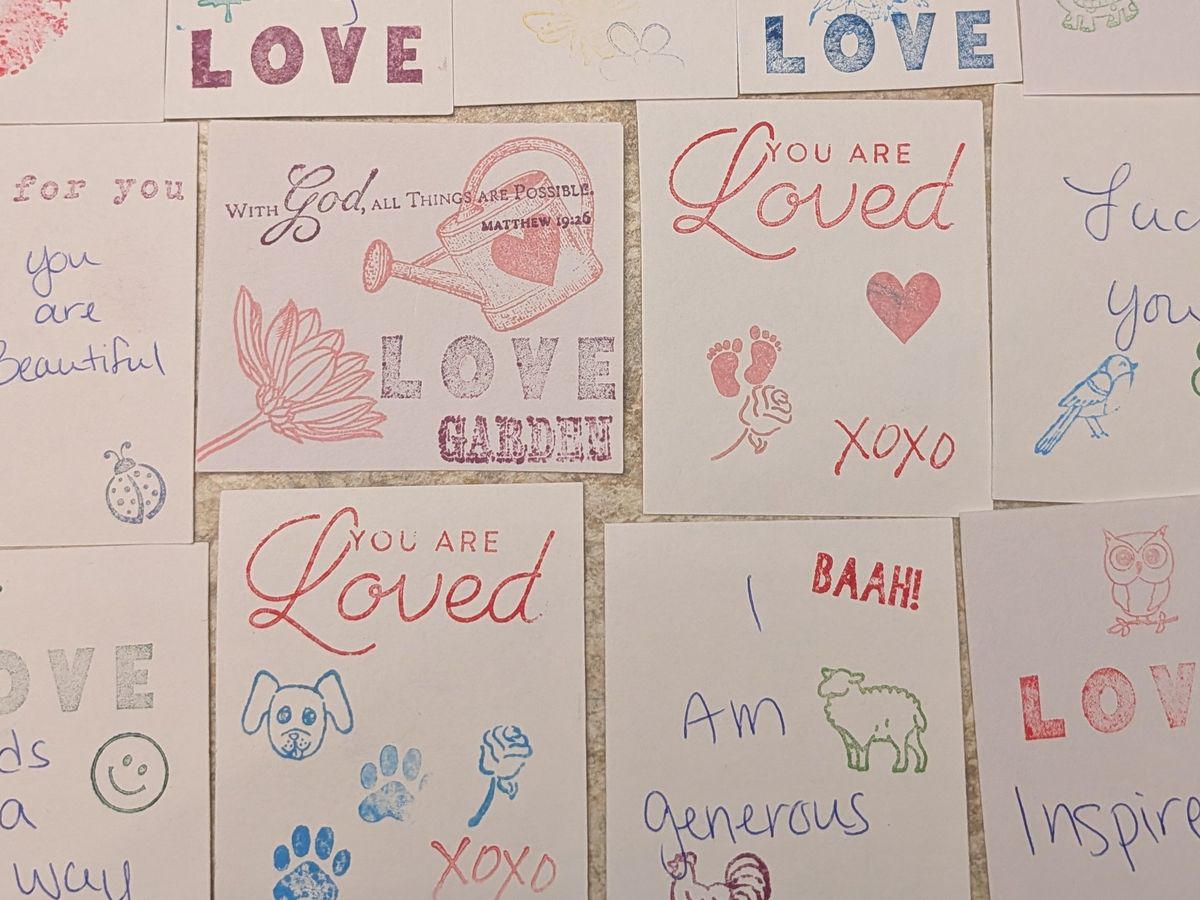 LOVE
LOVE
for you
you
are
Beautiful
WITH God, ALL THINGS ARE POSSIBLE.
MATTHEW 19:26
LOVE
GARDEN
YOU ARE
Loved
XOXO
you
YOU ARE
Loved
XOXO
I
BAAH!
Am
generous
a
way
Inspire